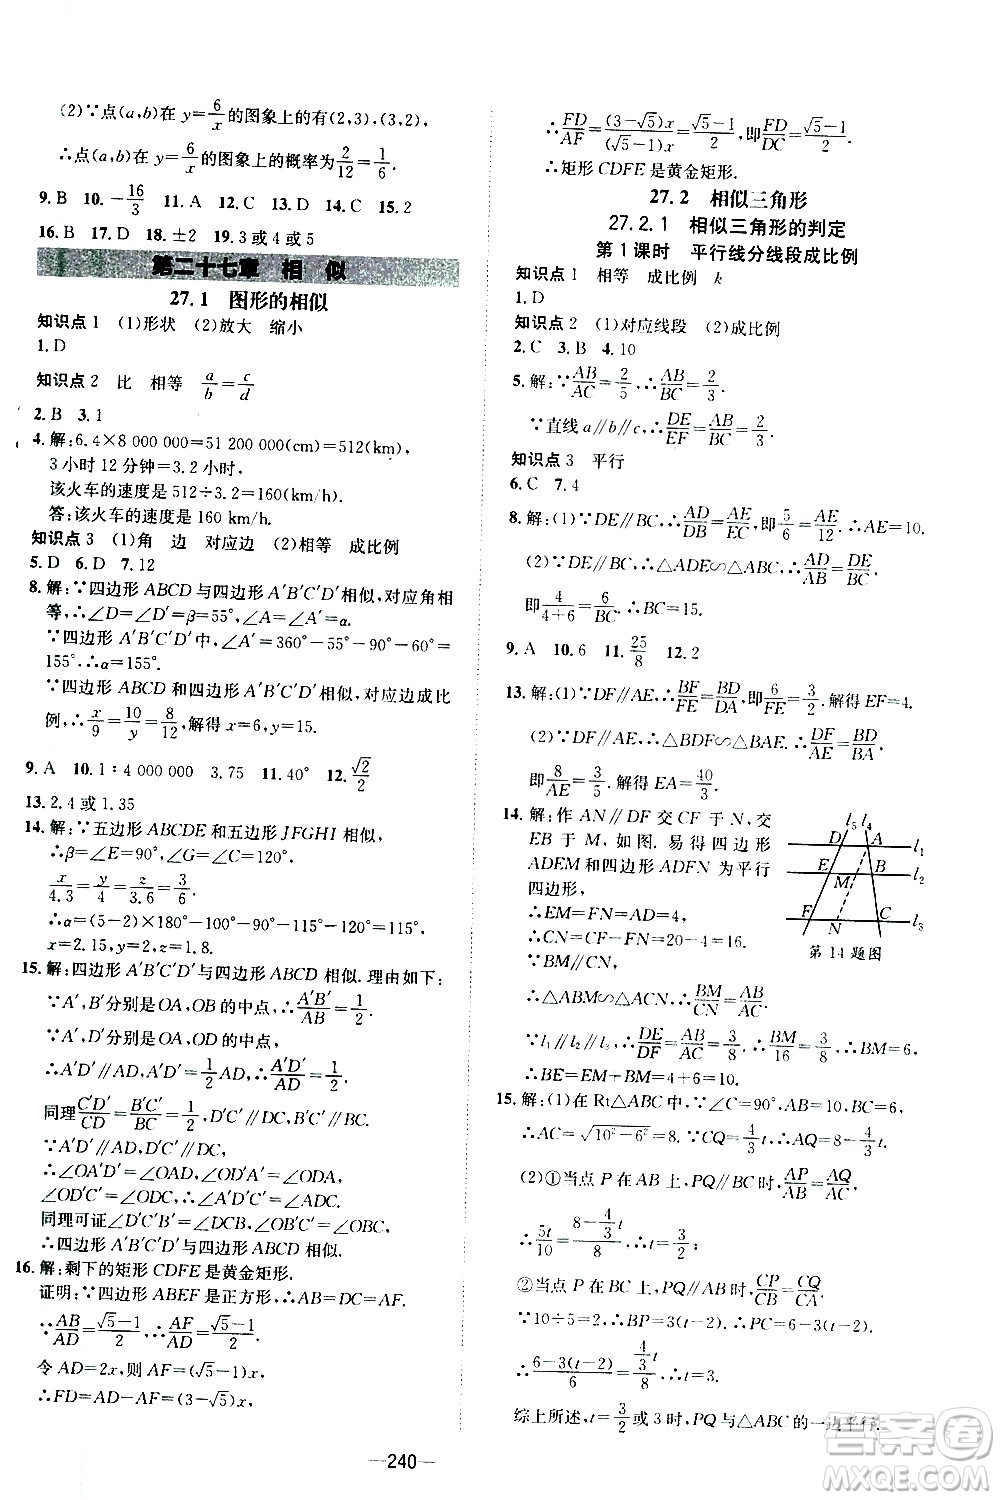 (2)∵点(a,b)在 y=6/x 的图象上的有(2,3),(3,2),
∴点(a,b)在 y=6/x 的图象上的概率为 2/12=1/6.
9. B 10. -16/3 11. A 12. C 13. D 14. C 15. 2
16. B 17. D 18. ±2 19. 3 或 4 或 5
第二十七章 相 似
27.1 图形的相似
知识点 1 (1)形状 (2)放大 缩小
1. D
知识点 2 比 相等 a/b=c/d
2. B 3. 1
4. 解:6.4×8 000 000=51 200 000(cm)=512(km)
3 小时 12 分钟=3.2 小时,
该火车的速度是 512÷3.2=160(km/h)
答:该火车的速度是 160 km/h.
知识点 3 (1)角 边 对应边 (2)相等 成比例
5. D 6. D 7. 12
8. 解:∵四边形 ABCD 与四边形 A′B′C′D′相似,对应角相
等,∴∠D=∠D′=β=55°,∠A=∠A′=α.
∵四边形 A′B′C′D′中,∠A′=360°-55°-90°-60°=
155°,∴α=155°.
∵四边形 ABCD 和四边形 A′B′C′D′相似,对应边成比
例,∴x/9=10/y=8/12,解得 x=6,y=15.
9. A 10. 1∶4 000 000 3.75 11. 40° 12. √2/2
13. 2.4 或 1.35
14. 解:∵五边形 ABCDE 和五边形 JFGHI 相似,
∴β=∠E=90°,∠G=∠C=120°.
x/4.3=y/4=z/3=3/6.
∴α=(5-2)×180°-90°-90°-115°-120°=125°.
x=2.15,y=2,z=1.8.
15. 解:四边形 A′B′C′D′与四边形 ABCD 相似.理由如下:
∵A′,B′分别是 OA,OB 的中点,∴A′B′/AB=1/2.
∵A′,D′分别是 OA,OD 的中点,
∴A′D′∥AD,A′D′=1/2AD,∴A′D′/AD=1/2.
同理 C′D′/CD=B′C′/BC=1/2,D′C′∥DC,
∵A′D′∥AD,D′C′∥DC,
∴∠OA′D′=∠OAD,∠OD′A′=∠ODA,
∠OD′C′=∠ODC,∴∠A′D′C′=∠ADC.
同理可证∠D′C′B′=∠DCB,∠OBC′=∠OBC.
∴四边形 A′B′C′D′与四边形 ABCD 相似.
16. 解:剩下的矩形 CDFE 是黄金矩形.
证明:∵四边形 ABEF 是正方形,∴AB=DC=AF.
∵AB/AD=(√5-1)/2,∴AF/AD=(√5-1)/2.
令 AD=2x,则 AF=(√5-1)x,
∴FD=AD-AF=(3-√5)x,
∴FD/AF=(3-√5)x/(√5-1)x=(√5-1)/2,即FD/DC=(√5-1)/2.
∴矩形 CDFE 是黄金矩形.
27.2 相似三角形
27.2.1 相似三角形的判定
第 1 课时 平行线分线段成比例
知识点 1 相等 成比例 k
1. D
知识点 2 (1)对应线段 (2)成比例
2. C 3. B 4. 10
5. 解:∵AB/AC=2/5,∴AB/BC=2/3.
∵直线 a∥b∥c,∴DE/EF=AB/BC=2/3.
知识点 3 平行
6. C 7. 4
8. 解:(1)∵DE∥BC,∴AD/DB=AE/EC,即5/6=AE/12.∴AE=10.
(2)∵DE∥BC,∴△ADE∽△ABC,∴AD/AB=DE/BC,
即4/(4+6)=6/BC.∴BC=15.
9. A 10. 6 11. 25/8 12. 2
13. 解:(1)∵DF∥AE,∴BF/FE=BD/DA,即6/FE=3/2.解得 EF=4.
(2)∵DF∥AE,∴△BDF∽△BAE.∴DF/AE=BD/BA,
即8/AE=3/5.解得 EA=40/3.
14. 解:作 AN∥DF 交 CF 于 N,交
EB 于 M,如图.易得四边形
ADEM 和四边形 ADFN 为平行
四边形,
∴EM=FN=AD=4.
∴CN=CF-FN=20-4=16.
∵BM∥CN,
∴△ABM∽△ACN,∴BM/CN=AB/AC.
∵l₁∥l₂∥l₃,∴DE/DF=AB/AC=3/8,∴BM/16=3/8,∴BM=6,
∴BE=EM+BM=4+6=10.
l₅ l₄
D A l₁
E B l₂
M
F N C l₃
第 14 题图
15. 解:(1)在 Rt△ABC 中,∵∠C=90°,AB=10,BC=6,
∴AC=√(10²-6²)=8.∵CQ=4/3t,∴AQ=8-4/3t.
(2)①当点 P 在 AB 上,PQ∥BC时,AP/AB=AQ/AC,
∴5t/10=(8-4/3t)/8,∴t=3/2.
②当点 P 在 BC 上,PQ∥AB时,CP/CB=CQ/CA,
∵10÷5=2,∴BP=3(t-2),∴CP=6-3(t-2).
∴(6-3(t-2))/6=4/3t/8,∴t=3.
综上所述,t=3/2或 3时,PQ与△ABC的一边平行.
—240—
答案圈
MXQE.COM